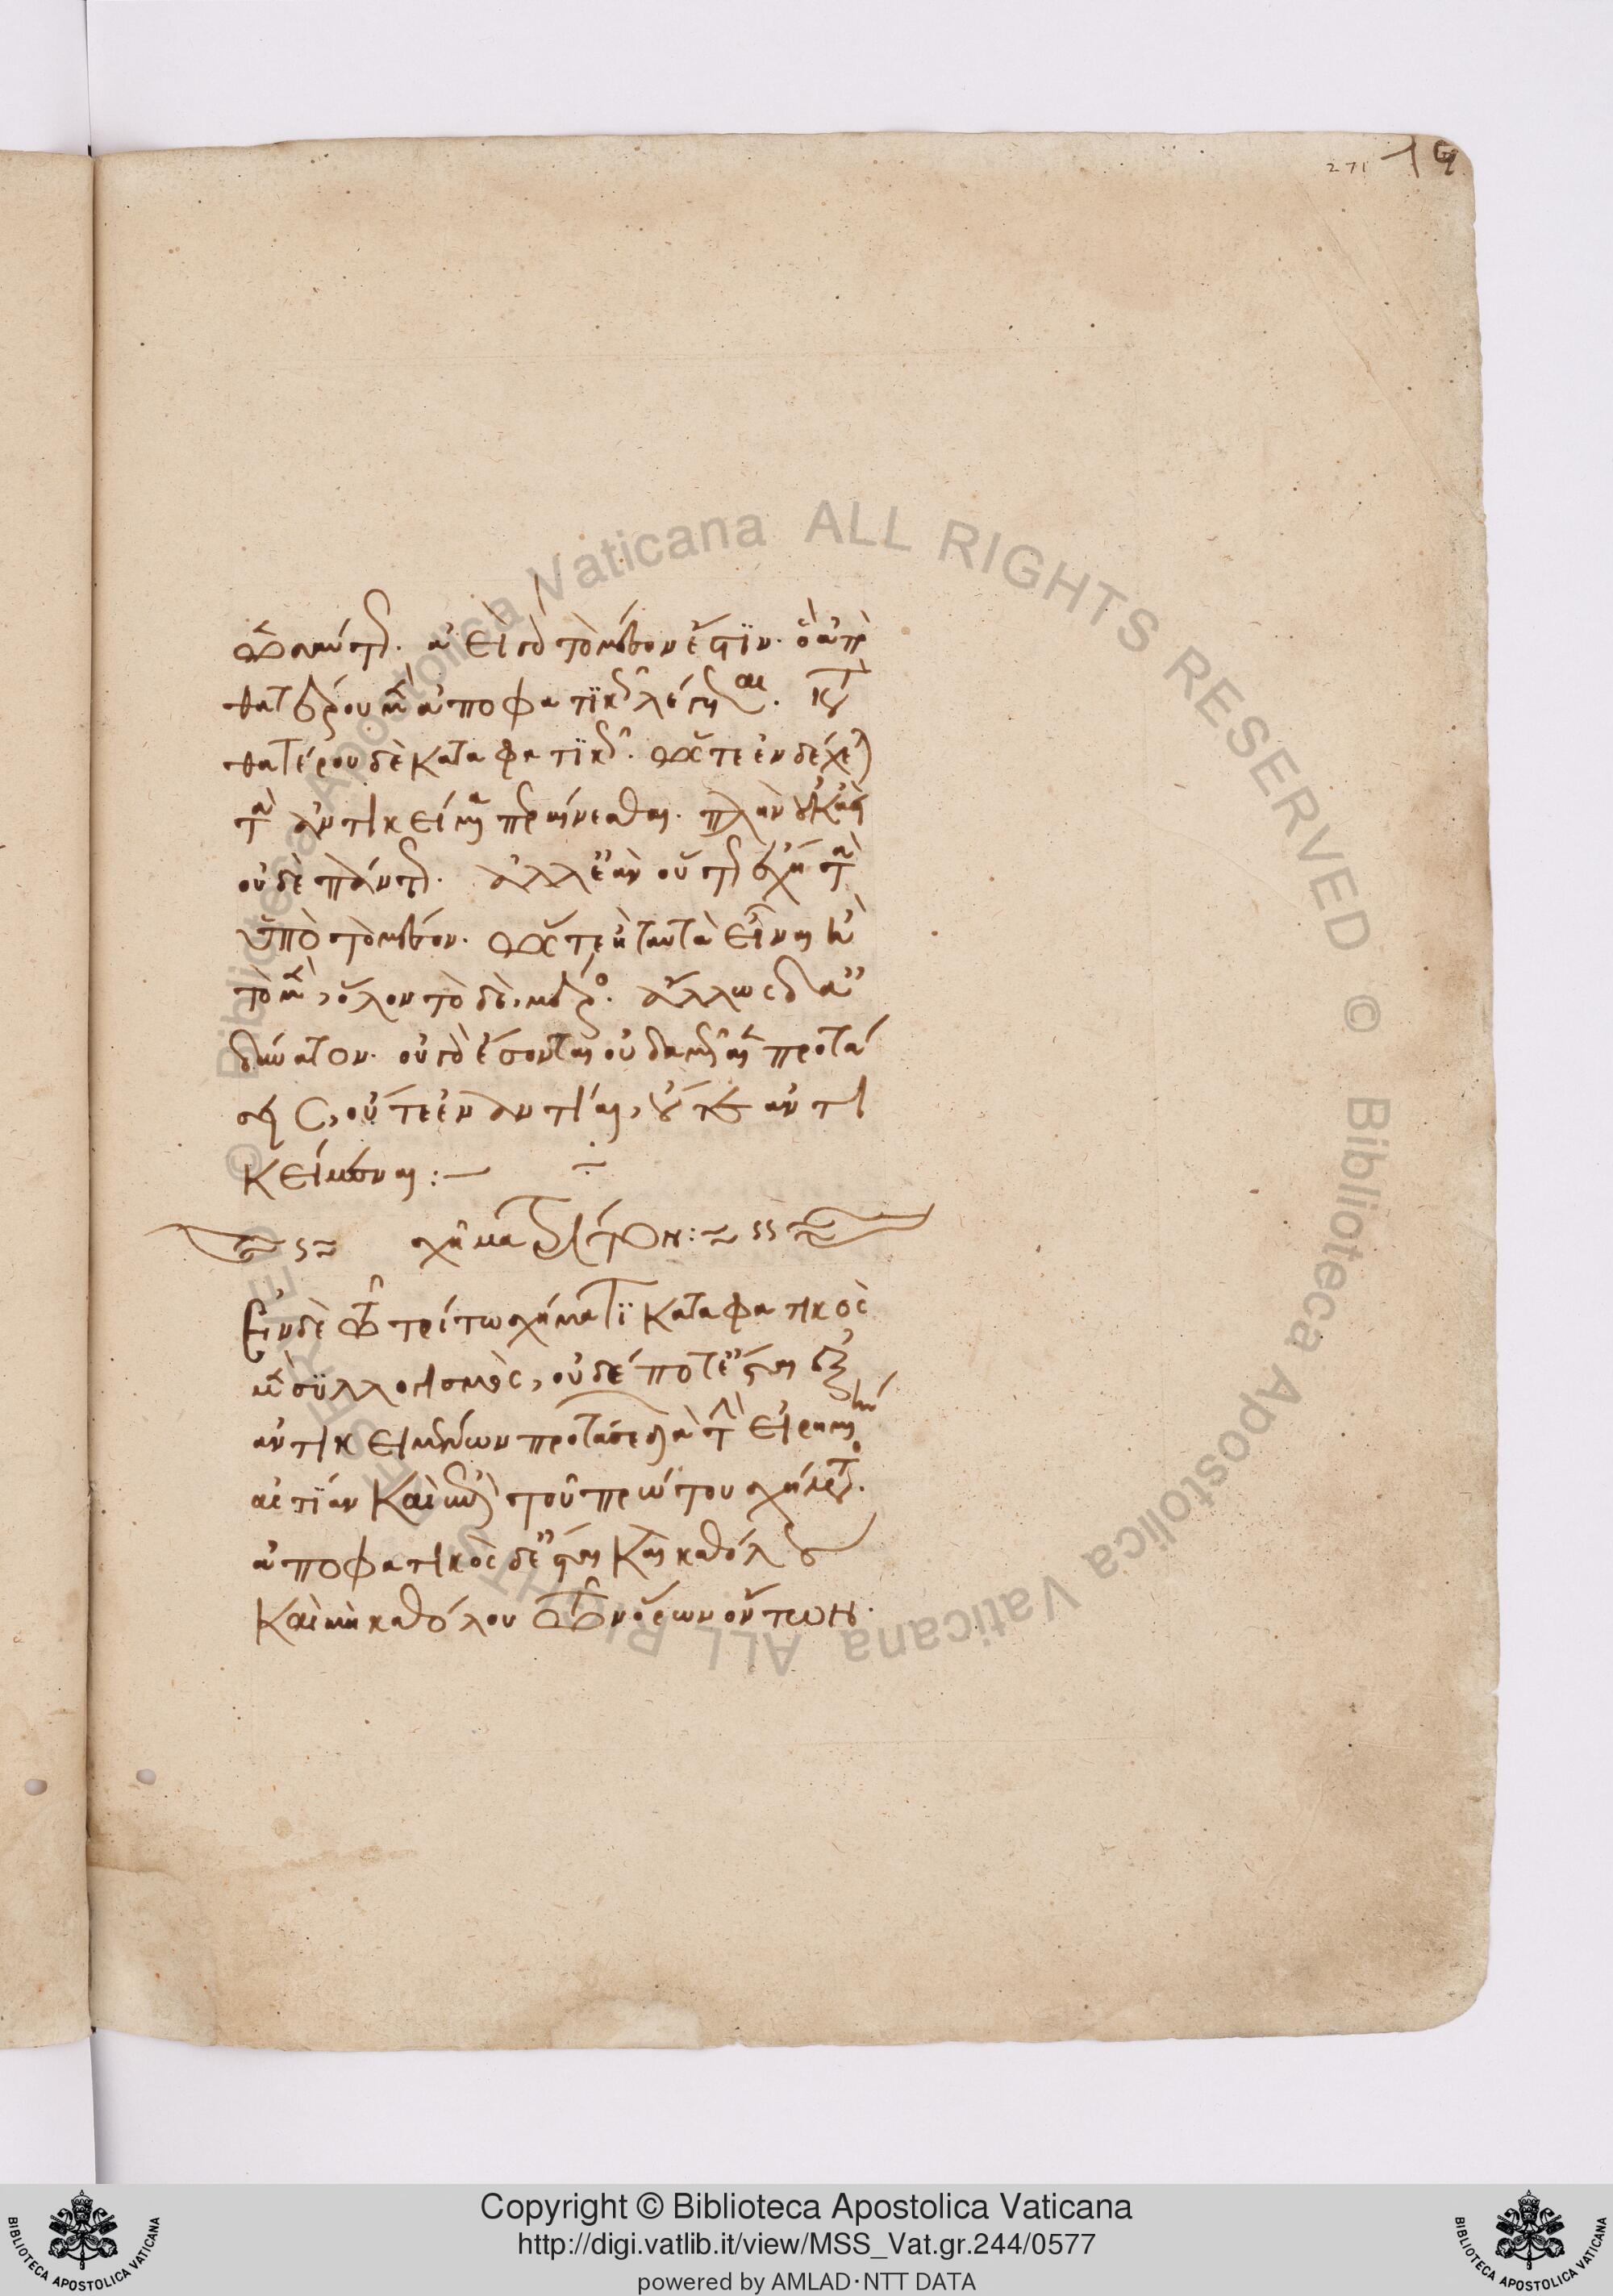 271 19
ὡσαύτως. εἰ γὰρ τὸ μέσον ἐστὶν. ὃ ἀπὸ
θατέρου μὲν ἀποφατικῶς λέγεται. κατὰ
θατέρου δὲ καταφατικῶς. ὥστε ἐνδέχεται
τὰ ἀντικείμενα περαίνεσθαι. πλὴν οὐκ ἀεὶ
οὐδὲ πάντως. ἀλλ' ἐὰν οὕτως ἔχῃ τὰ
ὑπὸ τὸ μέσον. ὥστ' ἢ ταὐτὰ εἶναι ἢ
τὸ μὲν, ὅλον τὸ δὲ, μέρος. ἄλλως δ' ἀ
δύνατον. οὐ γὰρ ἔσονται οὐδαμῶς αἱ προτά
σεις, οὔτε ἐναντίαι, οὔτε ἀντι
κείμεναι:—
σχῆμα τρίτον:
Ἐν δὲ τῷ τρίτῳ σχήματι καταφατικὸς
μὲν συλλογισμὸς, οὐδέποτ' ἔσται ἐξ
ἀντικειμένων προτάσεων διὰ τὴν εἰρημένην
αἰτίαν καὶ ἐπὶ τοῦ πρώτου σχήματος.
ἀποφατικὸς δ' ἔσται καὶ καθόλου
καὶ μὴ καθόλου τῶν ὅρων ὄντων.
© Biblioteca Apostolica Vaticana ALL RIGHTS RESERVED © Biblioteca Apostolica Vaticana ALL RIGHTS RESERVED
Copyright © Biblioteca Apostolica Vaticana
http://digi.vatlib.it/view/MSS_Vat.gr.244/0577
powered by AMLAD·NTT DATA
BIBLIOTECA APOSTOLICA VATICANA
BIBLIOTECA APOSTOLICA VATICANA